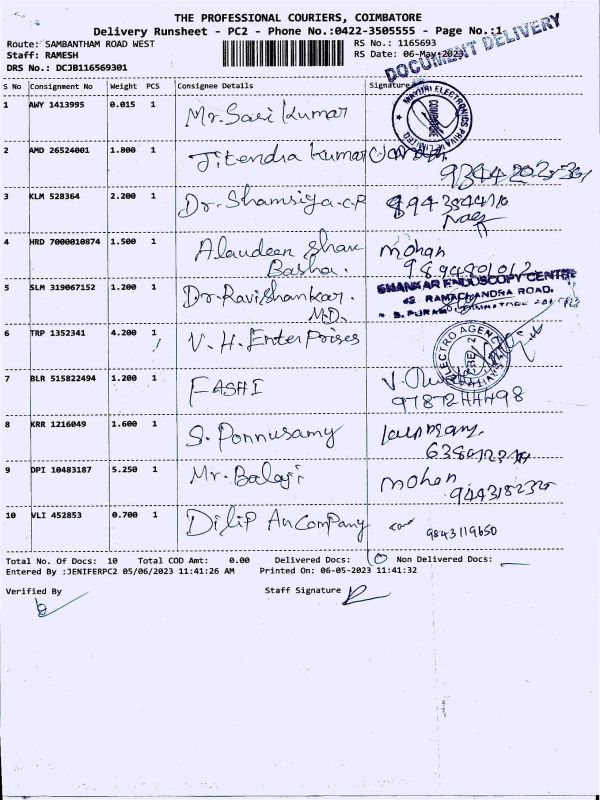 THE PROFESSIONAL COURIERS, COIMBATORE
Delivery Runsheet - PC2 - Phone No.:0422-3505555 - Page No.:1
DOCUMENT DELIVERY
Route: SAMBANTHAM ROAD WEST RS No.: 1165693
Staff: RAMESH RS Date: 06-May-2023
DRS No.: DCJB116569301
S No Consignment No Weight PCS Consignee Details Signature
1 AWY 1413995 0.015 1 Mr. Sasi Kumar
MAYURI ELECTRONICS PRIVATE LIMITED COIMBATORE
2 AMD 26524001 1.800 1 Jitendra Kumar
3 KLM 528364 2.200 1 Dr. Shamsiya.C.P
4 HRD 7000010874 1.500 1 Alaudeen Shaw mohan
Basha. 9894801012
5 SLM 319067152 1.200 1 Dr. Ravishankar. SHANKAR ENDOSCOPY CENTRE
M.D. 42, RAMACHANDRA ROAD,
R. S. PURAM
6 TRP 1352341 4.200 1 V. H. Enterprises
ELECTRO AGENC
7 BLR 515822494 1.200 1 FASHI V.
9787244498
8 KRR 1216049 1.600 1 S. Ponnusamy
9 DPI 10483187 5.250 1 Mr. Balaji mohan
10 VLI 452853 0.700 1 Dilip An Company 9843119650
Total No. Of Docs: 10 Total COD Amt: 0.00 Delivered Docs: 10 Non Delivered Docs:
Entered By :JENIFERPC2 05/06/2023 11:41:26 AM Printed On: 06-05-2023 11:41:32
Verified By Staff Signature